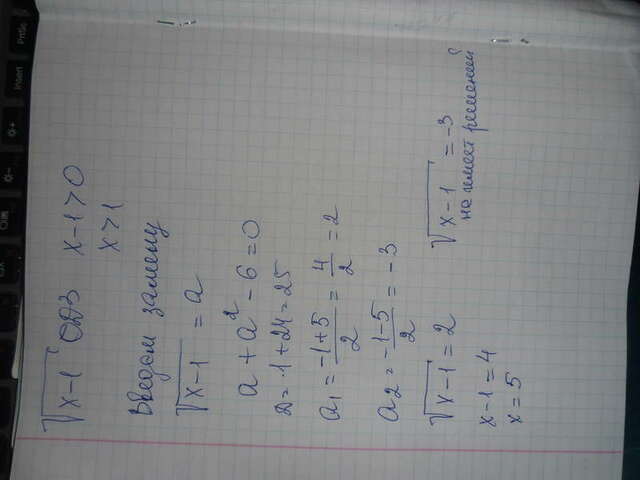 Insert PrtSc
√x-1 ОДЗ x-1>0
x>1
Введем замену
√x-1 = a
a + a² - 6 = 0
D = 1+24 = 25
a₁ = -1+5/2 = 4/2 = 2
a₂ = -1-5/2 = -3
√x-1 = 2 √x-1 = -3
не имеет решений
x-1 = 4
x = 5